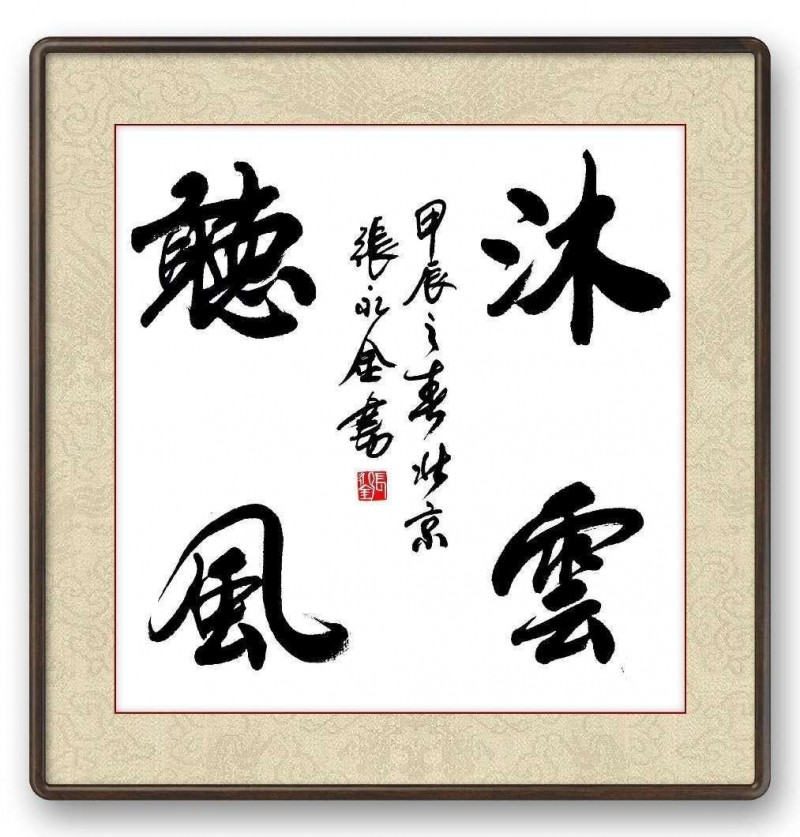 沐雲
聽風
甲辰之春北京
張永金書